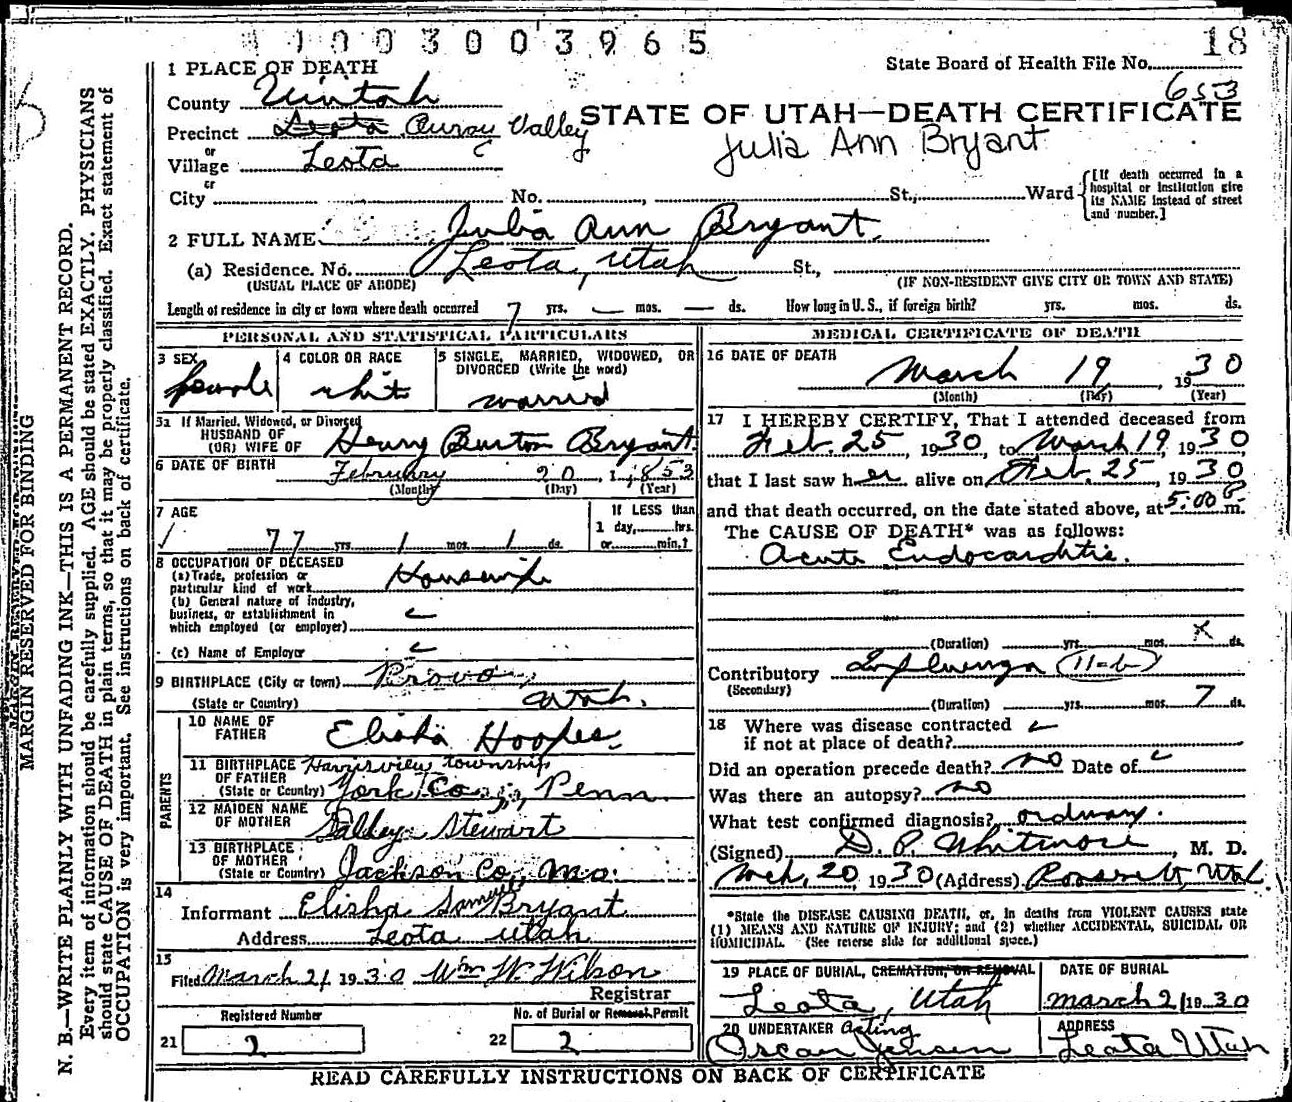 1003003965
18
State Board of Health File No. 653
1 PLACE OF DEATH
County Uintah
STATE OF UTAH—DEATH CERTIFICATE
Precinct Leota Ouray Valley
Julia Ann Bryant
or
Village Leota
or
City No. , St., Ward
[If death occurred in a hospital or institution give its NAME instead of street and number.]
2 FULL NAME Julia Ann Bryant
(a) Residence. No. Leota, Utah St.,
(USUAL PLACE OF ABODE) (IF NON-RESIDENT GIVE CITY OR TOWN AND STATE)
Length of residence in city or town where death occurred 7 yrs. — mos. — ds. How long in U. S., if foreign birth? yrs. mos. ds.
PERSONAL AND STATISTICAL PARTICULARS
3 SEX
female
4 COLOR OR RACE
white
5 SINGLE, MARRIED, WIDOWED, OR DIVORCED (Write the word)
married
5a If Married, Widowed, or Divorced
HUSBAND OF
(OR) WIFE OF Henry Burton Bryant
6 DATE OF BIRTH February 20, 1853
(Month) (Day) (Year)
7 AGE
77 yrs. 1 mos. 1 ds.
If LESS than
1 day, hrs.
or min.?
8 OCCUPATION OF DECEASED
(a) Trade, profession or
particular kind of work Housewife
(b) General nature of industry,
business, or establishment in
which employed (or employer)
(c) Name of Employer
9 BIRTHPLACE (City or town) Provo,
(State or Country) Utah.
PARENTS
10 NAME OF
FATHER Elisha Hoopes.
11 BIRTHPLACE Harrisview township
OF FATHER
(State or Country) York Co., Penn.
12 MAIDEN NAME
OF MOTHER Stewart
13 BIRTHPLACE
OF MOTHER
(State or Country) Jackson Co, Mo.
14
Informant Elisha Samuel Bryant
Address Leota Utah
15
Filed March 21 1930 Wm W. Wilson
Registrar
Registered Number
21 2
No. of Burial or Removal Permit
22 2
MEDICAL CERTIFICATE OF DEATH
16 DATE OF DEATH
March 19, 1930
(Month) (Day) (Year)
17 I HEREBY CERTIFY, That I attended deceased from
Feb. 25, 1930, to March 19, 1930
that I last saw her alive on Feb. 25, 1930
and that death occurred, on the date stated above, at 5:00 P. m.
The CAUSE OF DEATH* was as follows:
Acute Endocarditis.
(Duration) yrs. mos. ds.
Contributory Influenza (11-b)
(Secondary)
(Duration) yrs. mos. 7 ds.
18 Where was disease contracted
if not at place of death?
Did an operation precede death? no Date of
Was there an autopsy? no
What test confirmed diagnosis? ordinary.
(Signed) D. P. Whitmore, M. D.
Mch, 20, 1930 (Address) Roosevelt, Utah.
*State the DISEASE CAUSING DEATH, or, in deaths from VIOLENT CAUSES state
(1) MEANS AND NATURE OF INJURY; and (2) whether ACCIDENTAL, SUICIDAL OR
HOMICIDAL. (See reverse side for additional space.)
19 PLACE OF BURIAL, CREMATION, OR REMOVAL
Leota, Utah
DATE OF BURIAL
March 21 1930
20 UNDERTAKER Acting
Oscar Jensen
ADDRESS
Leota Utah
READ CAREFULLY INSTRUCTIONS ON BACK OF CERTIFICATE
MARGIN RESERVED FOR BINDING
N. B.—WRITE PLAINLY WITH UNFADING INK—THIS IS A PERMANENT RECORD.
Every item of information should be carefully supplied. AGE should be stated EXACTLY. PHYSICIANS
should state CAUSE OF DEATH in plain terms, so that it may be properly classified. Exact statement of
OCCUPATION is very important. See instructions on back of certificate.